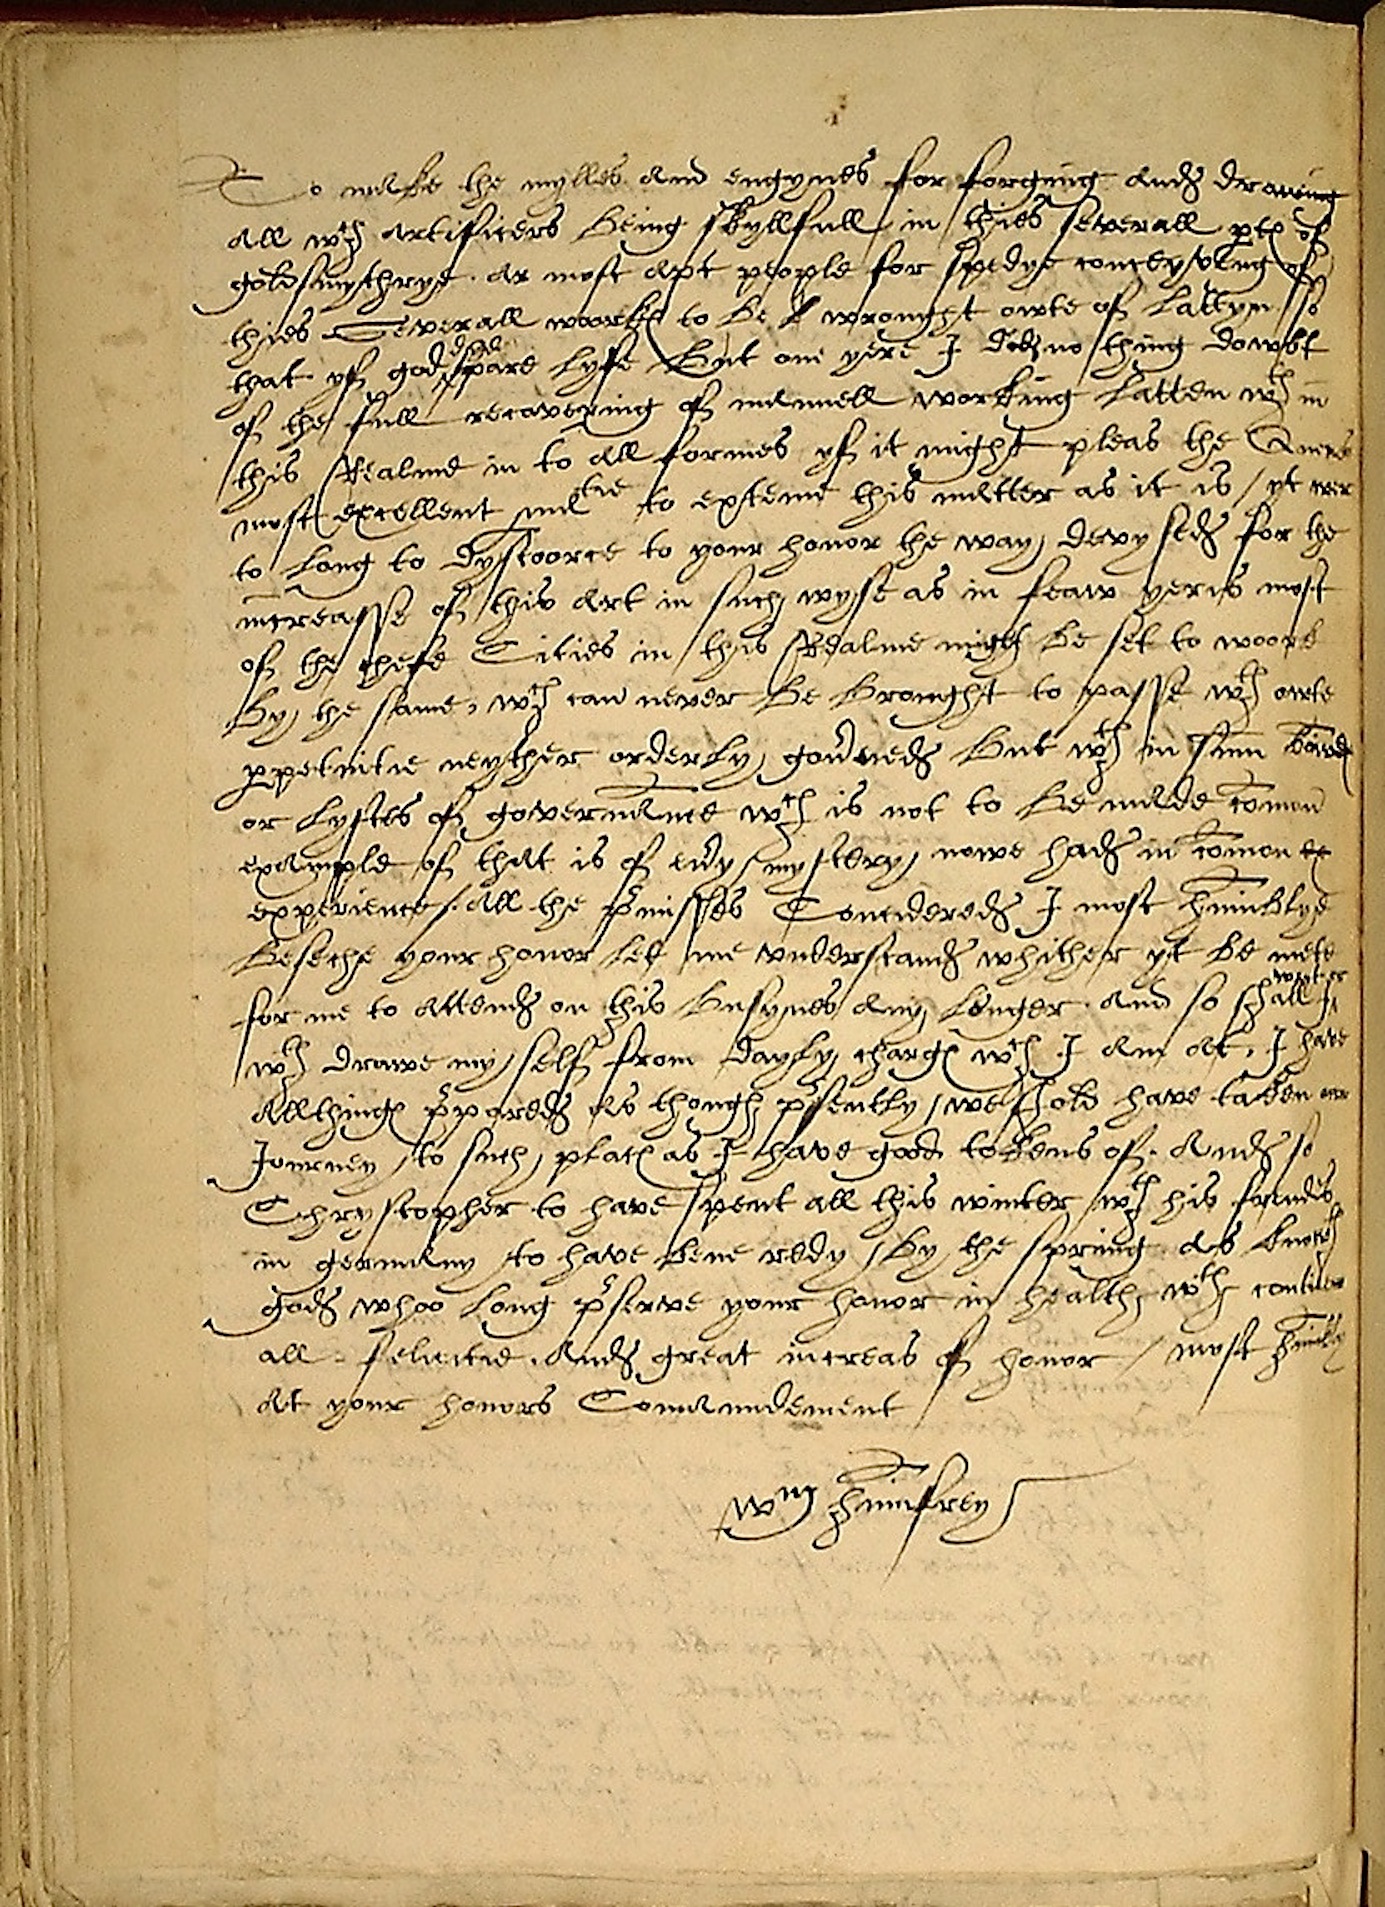 To make the mylles and engynes for forging and drawing
all wth artificers being skyllfull in thies severall ptes of
goldsmythrye. as most apt people for spedye conceyveng of
thies Severall woorkes to be wrought owte of Lattyn / so
that yf god spare lyfe but one yere I do no thing dowbt
of the full recovering of manuell working Latten wth in
this Realme in to all formes yf it might pleas the Quenes
most excellent matie to exteme this matter as it is / yt wer
to long to dyscoorce to your honor the way devysed for the
increasse of this art in such wyse as in feaw yeres most
of the chefe Cities in this Realme might be set to woork
by the same, wch can never be brought to passe wth owte
ppetuitie neyther orderly governed but wth in sum bandes
or lystes of governance wch is not to be made comon
example of that is of evry mystery nowe had in comon
experience /. All the pmisses Concidered I most humblye
beseche your honor let me understand whither yt be mete
for me to attend on this busynes any longer. And so shall I
wth drawe my self from dayly charges wch I am at, I have
allthinges ppared as though psently we shold have taken our
Journey to such places as I have good tokens of. And so
Chrystopher to have spent all this winter wth his frindes
in germany to have bene redy by the spring. as knowth
god whoo long pserve your honor in health, wth contiuw
all felicitie. And great increas of honor / most humbly
At your honors Commandement
Wm Humfrey